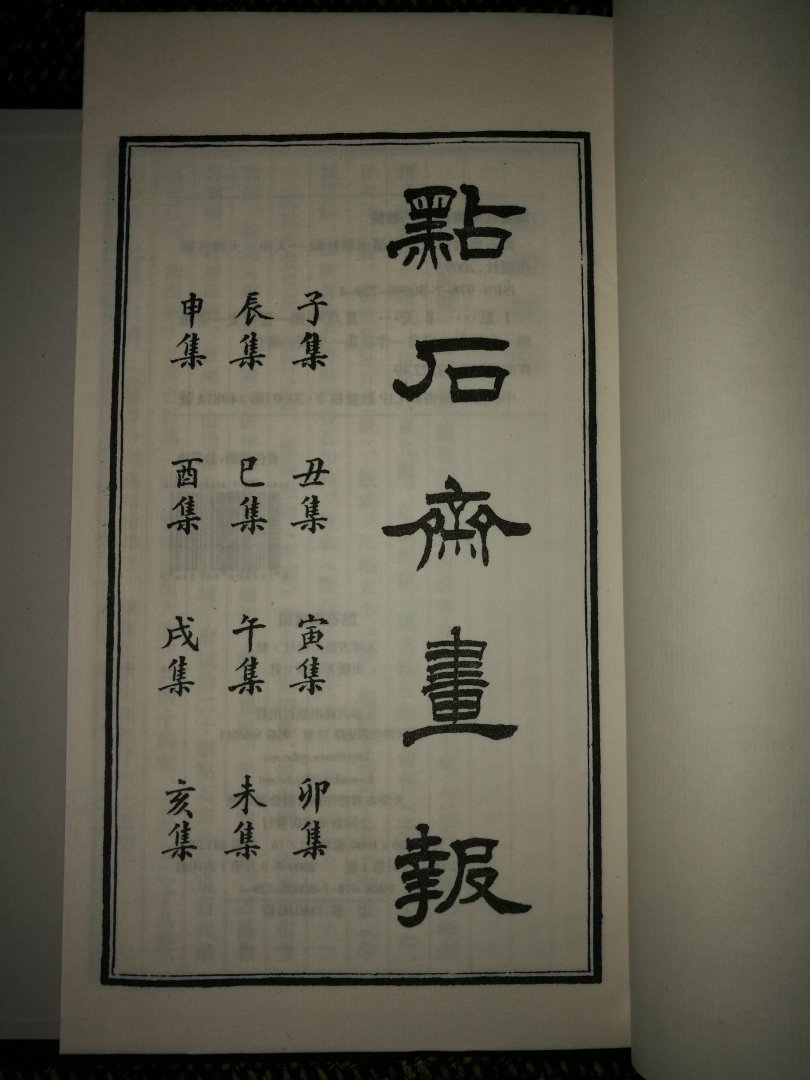 點石齋畫報
子集 丑集 寅集 卯集
辰集 巳集 午集 未集
申集 酉集 戌集 亥集